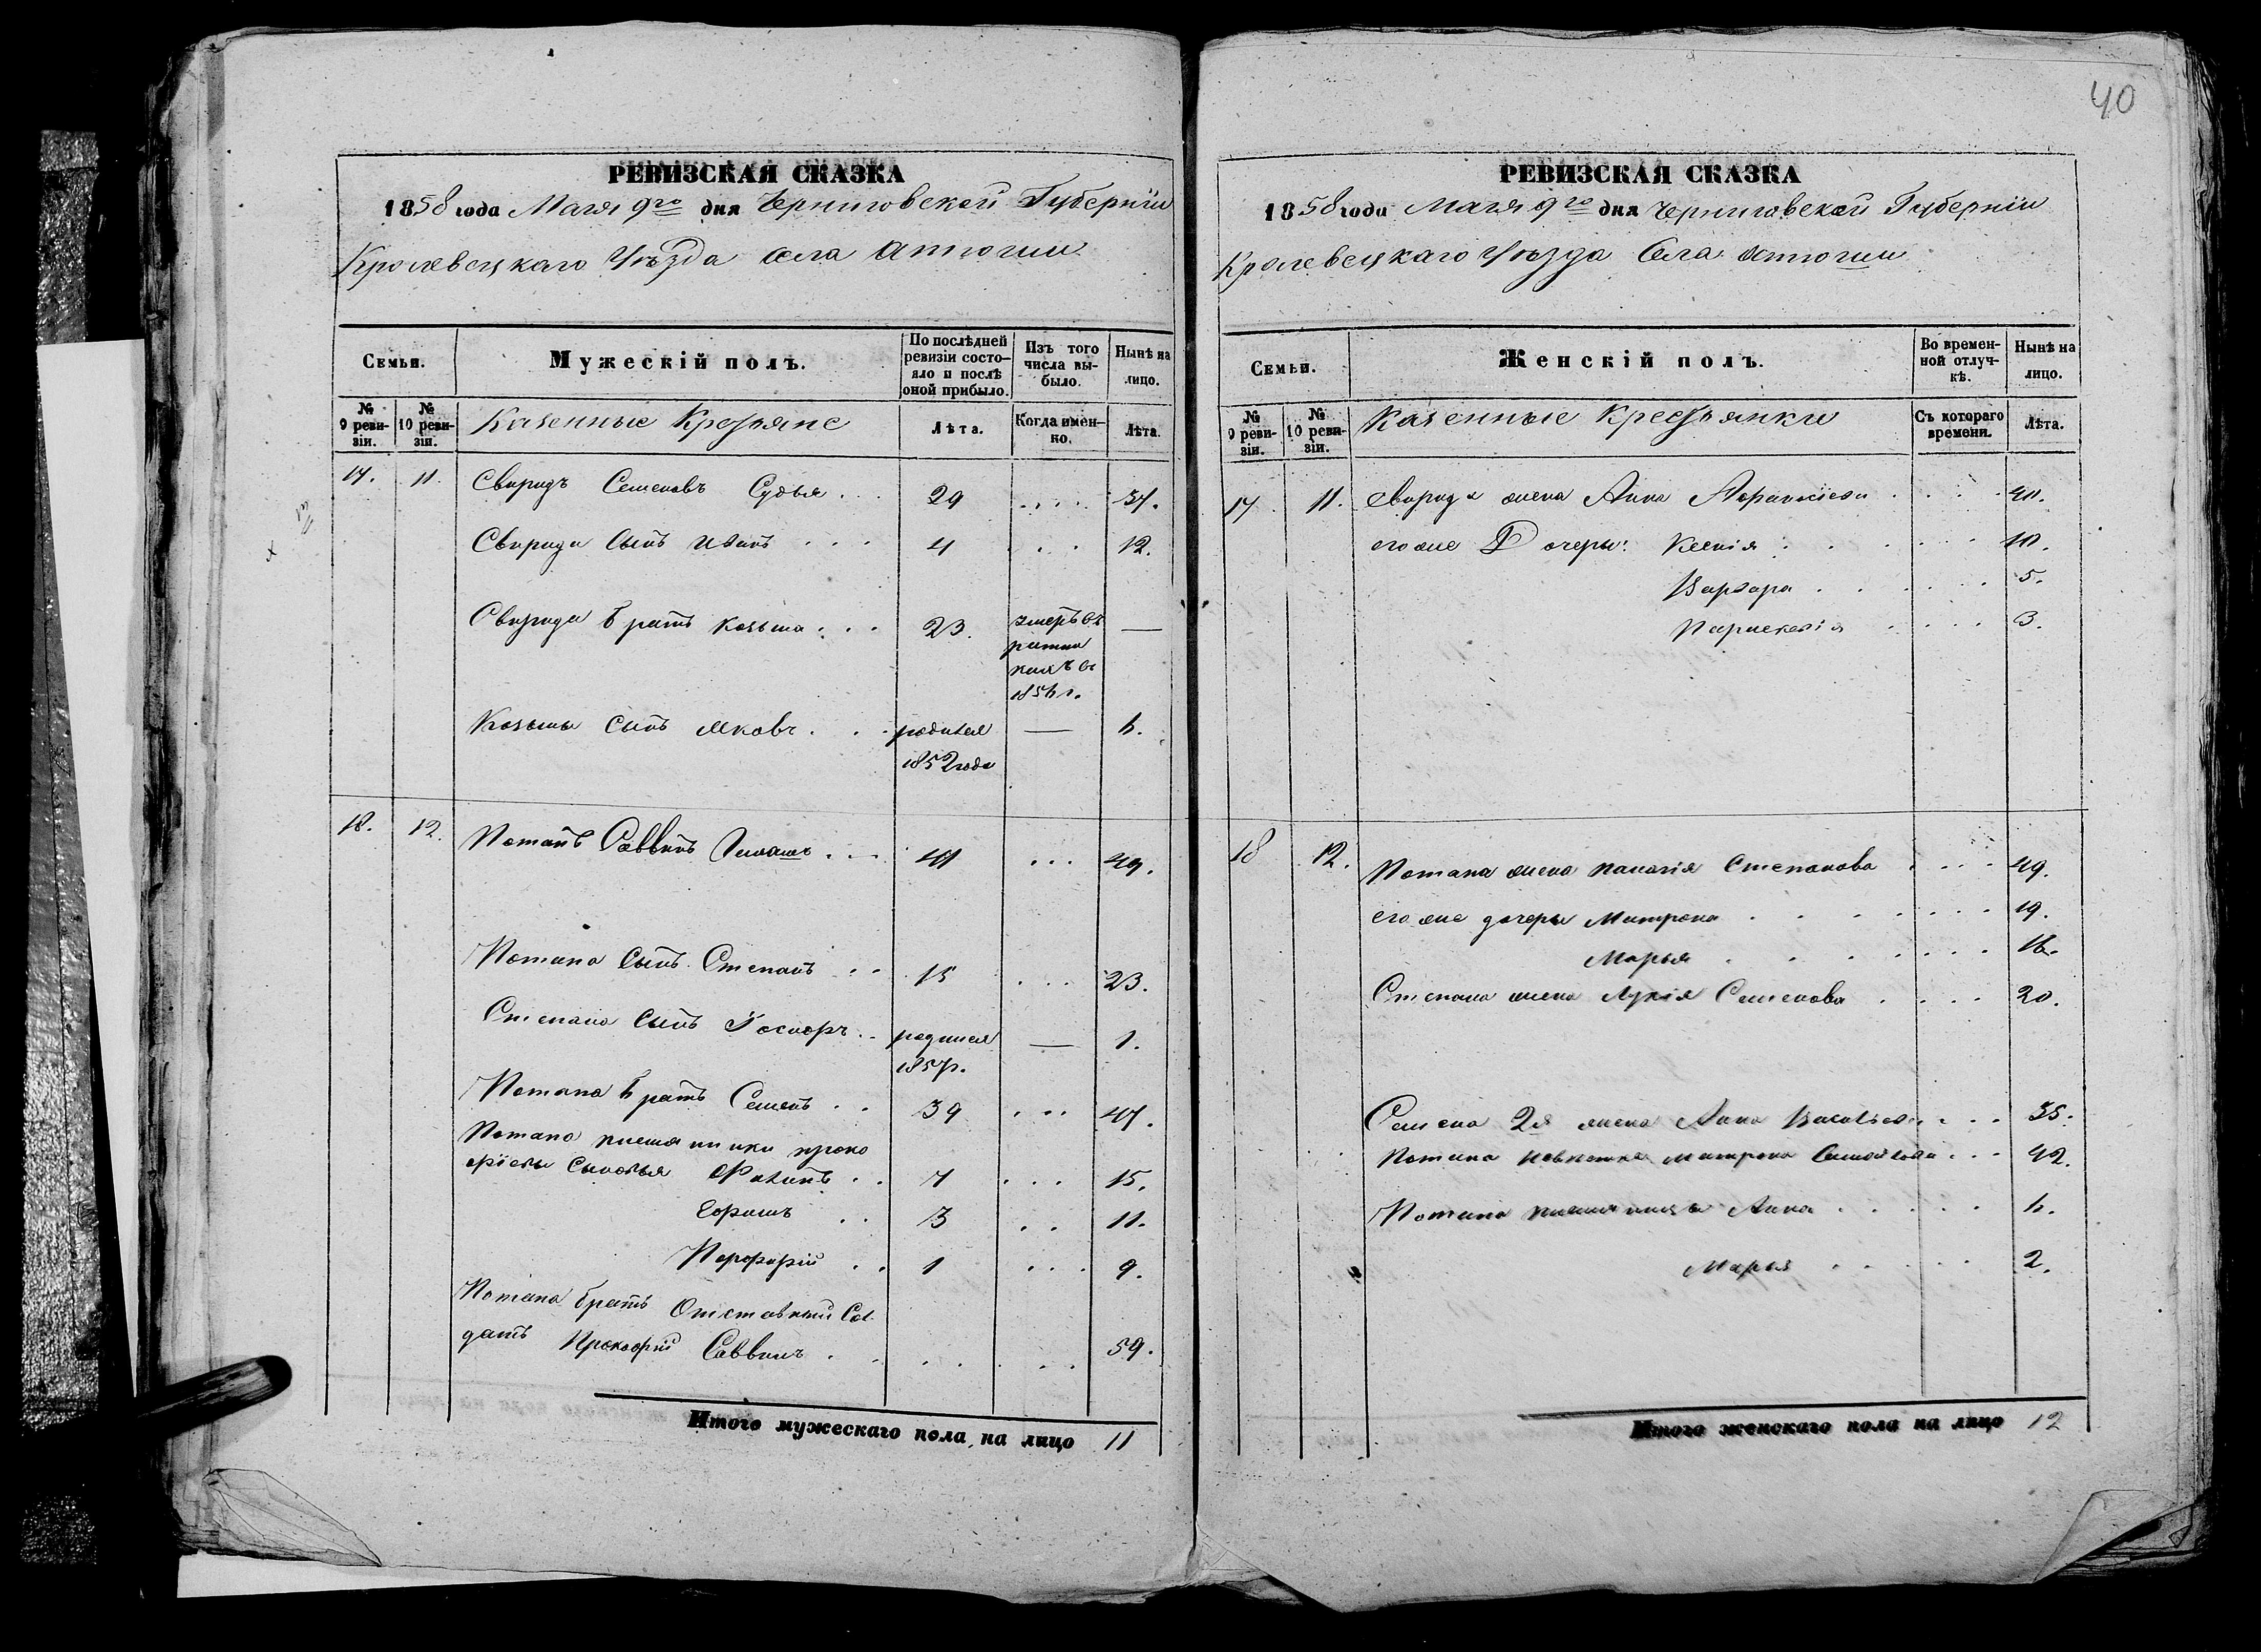 40
РЕВИЗСКАЯ СКАЗКА
1858 года Маія 9го дня Черниговской Губерніи
Кролевецкаго Уѣзда Села
Семьи.
Мужескій полъ.
По послѣдней ревизіи состояло и послѣ оной прибыло.
Изъ того числа выбыло.
Нынѣ на лицо.
№ 9 ревизіи.
№ 10 ревизіи.
Казенные Крестьяне
Лѣта.
Когда именно.
Лѣта.
17. 11. Свиридъ Семеновъ Судья . . . 29 . . . . 37.
Свирида Сынъ Иванъ . . . 4 . . . 12.
Свирида братъ Козьма . . . 23. умеръ въ —
въ
1856 г.
Козьмы Сынъ Яковъ . . . родился — 6.
1852 года
18. 12. Потапъ Саввинъ . . . 41 . . . 49.
Потапа Сынъ Степанъ . . 15 . . . 23.
Степана Сынъ . . родился — 1.
1857 г.
Потапа братъ Семенъ . . 39 . . . 47.
Потапа племянники Проко
фіевы Сыновья . . 7 . . . 15.
Ефимъ . . 3 . . 11.
Порфирій . . 1 . . . 9.
Потапа братъ Отставный Сол
датъ Прокофій Саввинъ . . . . . . 59.
Итого мужескаго пола на лицо 11
РЕВИЗСКАЯ СКАЗКА
1858 года Маія 9го дня Черниговской Губерніи
Кролевецкаго Уѣзда Села
Семьи.
Женскій полъ.
Во временной отлучкѣ.
Нынѣ на лицо.
№ 9 ревизіи.
№ 10 ревизіи.
Казенные Крестьянки
Съ котораго времени.
Лѣта.
17. 11. Свирида жена Анна . . . . 40.
его же Дочеры: Ксенія . . . . . 10.
Варвара . . . . . 5.
Параскевія . . . . 3.
18 12. Потапа жена Степанова . . . . 49.
его же дочеры Матрона . . . . . . 19.
Марья . . . . . . 16.
Степана жена Лукія Семенова . . . . 20.
Семена 2я жена Анна . . . 35.
Потапа невѣстка Матрона . . . 42.
Потапа племянница Анна . . . . . 6.
Марья . . . . . 2.
Итого женскаго пола на лицо 12